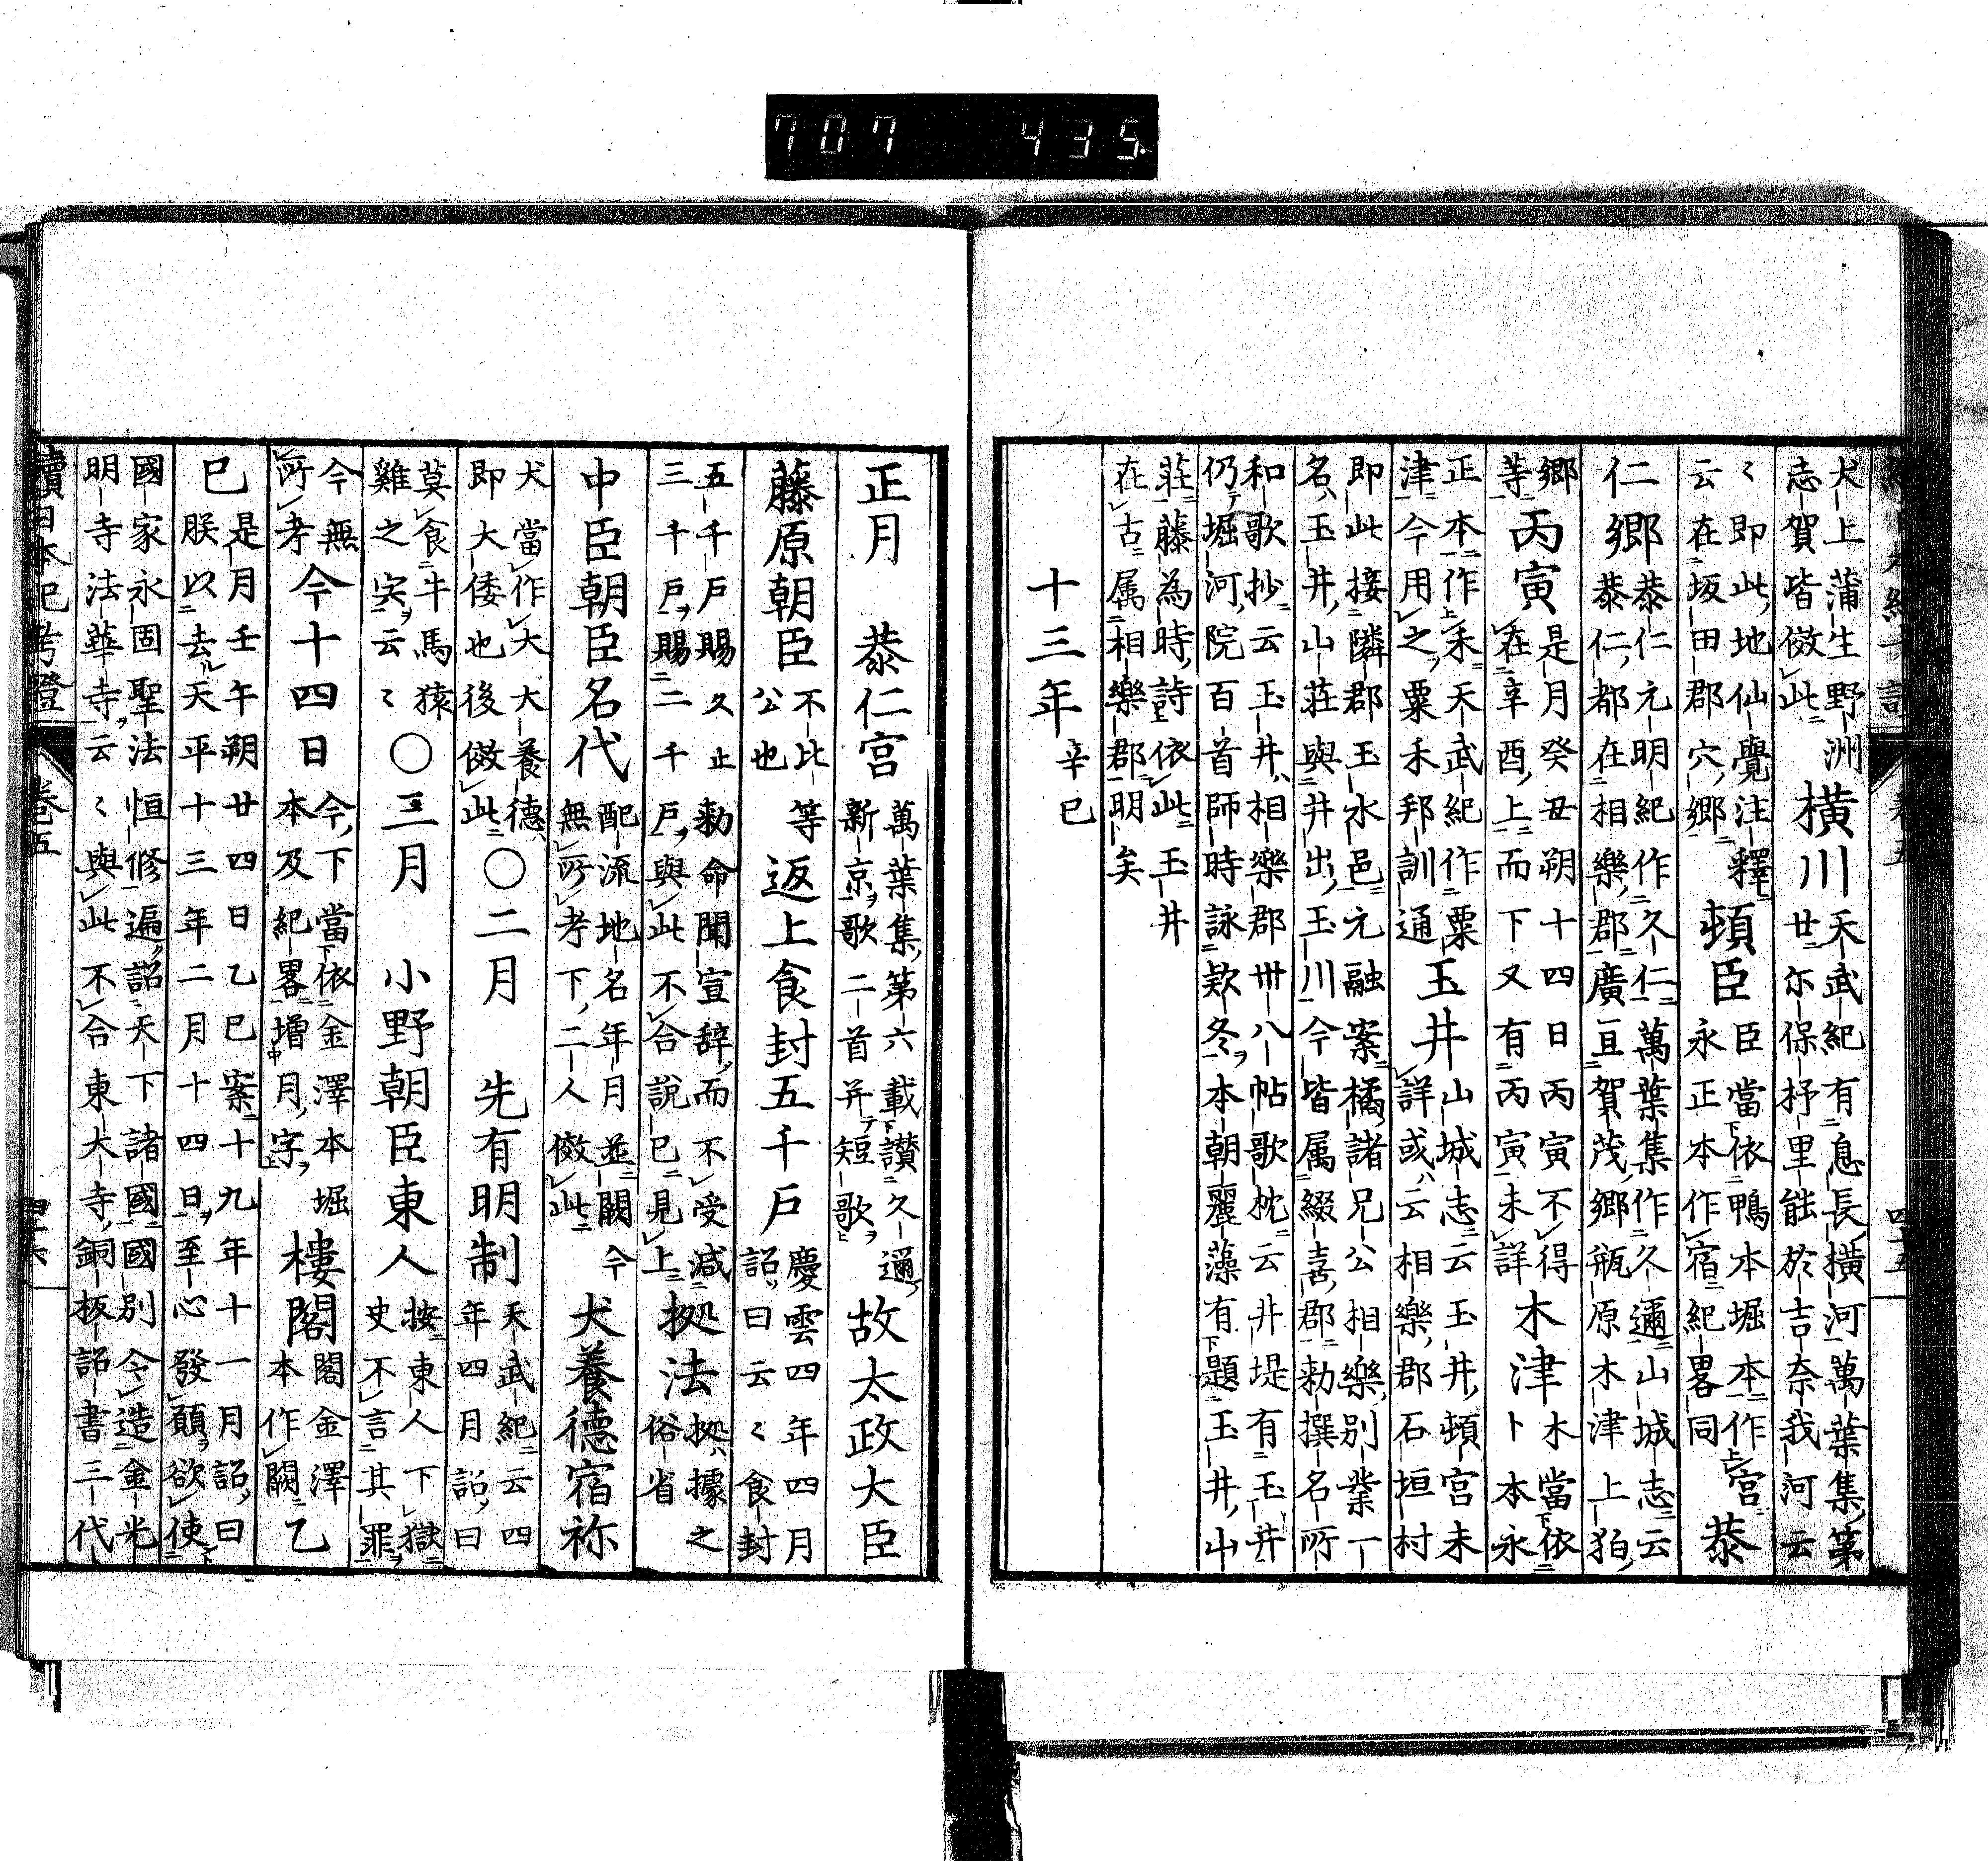 續日本紀考證 卷五 四十五
犬上蒲生野洲志賀皆倣此横川天武紀有息長横河萬葉集第廿尓保抒里能於吉奈我河云
〻即此地仙覺注釋云在坂田郡穴郷頓臣臣當依鴨本堀本作宮永正本作宿紀畧同恭
仁郷恭仁元明紀作久仁萬葉集作久邇山城志云恭仁都在相樂郡廣亘賀茂郷瓶原木津上狛
郷等丙寅是月癸丑朔十四日丙寅不得在辛酉上而下又有丙寅未詳木津木當依卜本永
正本作禾天武紀作粟津今用之粟禾邦訓通玉井山城志云玉井頓宮未詳或云相樂郡石垣村
即此接隣郡玉水邑元融案橘諸兄公相樂別業一名玉井山荘與井出玉川今皆属綴喜郡勅撰名所
和歌抄云玉井相樂郡卅八帖歌枕云井堤有玉井仍堀河院百首師時詠欵冬本朝麗藻有題玉井山
荘藤為時詩依此玉井在古属相樂郡明矣
十三年辛巳
正月 恭仁宮萬葉集第六載讃久邇新京歌二首并短歌故太政大臣
藤原朝臣不比等公也返上食封五千戸慶雲四年四月詔曰云〻食封
五千戸賜久止勅命聞宣辞而不受減三千戸賜二千戸與此不合說已見上拠法拠據之俗省
中臣朝臣名代配流地名年月並闕今無所考下二人倣此犬養德宿祢
犬當作大大養德即大倭也後倣此○二月 先有明制天武紀云四年四月詔曰
莫食牛馬猿雞之宍云〻○三月 小野朝臣東人按東人下獄史不言其罪
今無所考今十四日今下當依金澤本堀本及紀畧増月字樓閣閣金澤本作闕乙
巳是月壬午朔廿四日乙巳案十九年十一月詔曰朕以去天平十三年二月十四日至心發願欲使
國家永固聖法恒修遍詔天下諸國國別令造金光明寺法華寺云〻與此不合東大寺銅板詔書三代
續日本紀考證 卷五 四十六
707 435